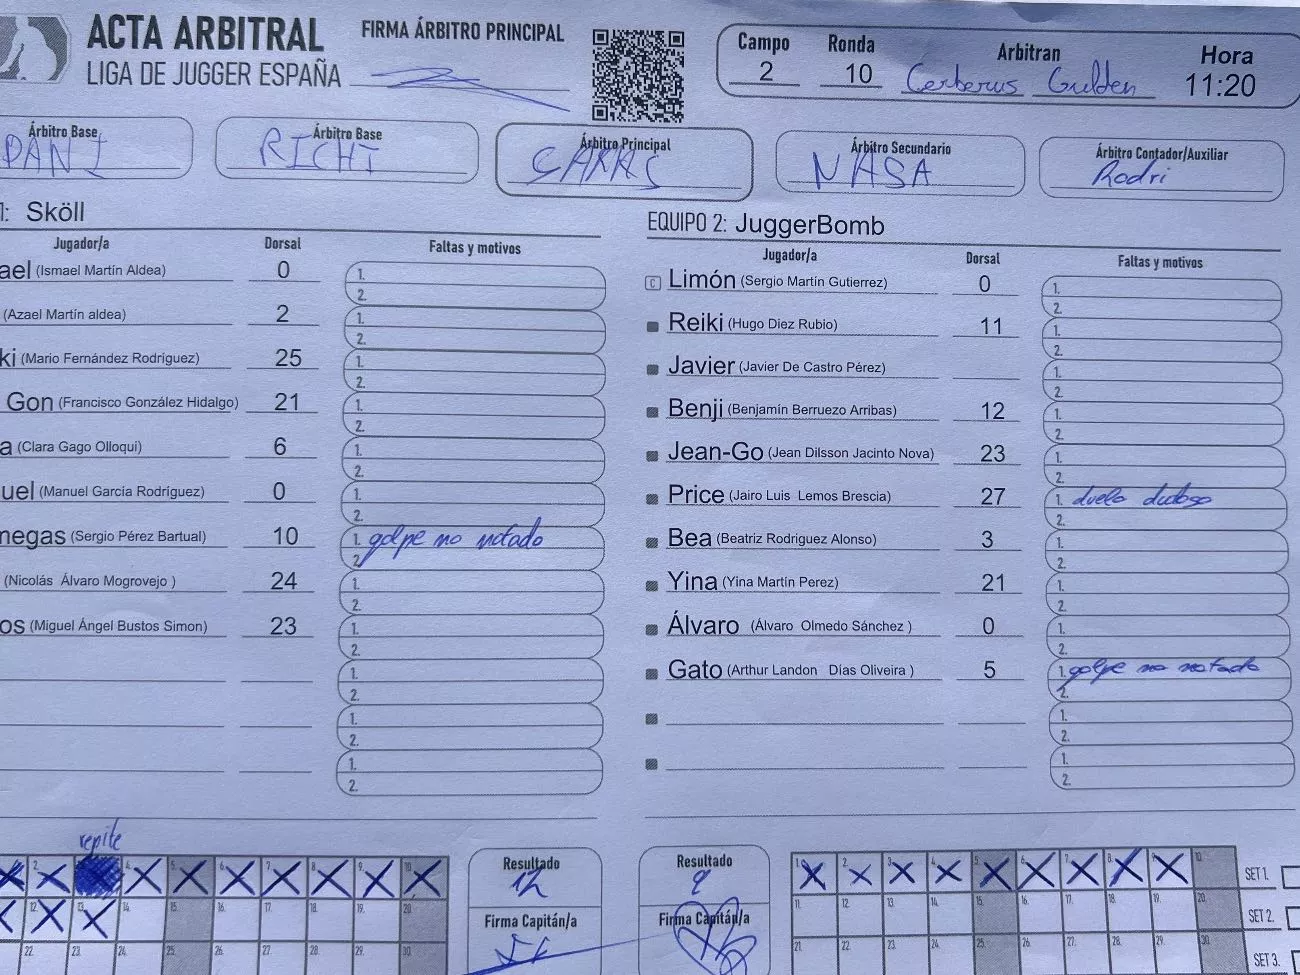 ACTA ARBITRAL
LIGA DE JUGGER ESPAÑA
FIRMA ÁRBITRO PRINCIPAL
Campo Ronda Arbitran Hora
2 10 Cerberus Gulden 11:20
Árbitro Base Árbitro Base Árbitro Principal Árbitro Secundario Árbitro Contador/Auxiliar
DANI RICHI CARAS NASA Rodri
1: Sköll
Jugador/a Dorsal Faltas y motivos
ael (Ismael Martín Aldea) 0 1.
2.
(Azael Martín aldea) 2 1.
2.
ki (Mario Fernández Rodríguez) 25 1.
2.
Gon (Francisco González Hidalgo) 21 1.
2.
a (Clara Gago Olloqui) 6 1.
2.
uel (Manuel García Rodríguez) 0 1.
2.
megas (Sergio Pérez Bartual) 10 1. golpe no notado
2.
(Nicolás Álvaro Mogrovejo ) 24 1.
2.
os (Miguel Ángel Bustos Simon) 23 1.
2.
1.
2.
1.
2.
1.
2.
EQUIPO 2: JuggerBomb
Jugador/a Dorsal Faltas y motivos
C Limón (Sergio Martín Gutierrez) 0 1.
2.
Reiki (Hugo Diez Rubio) 11 1.
2.
Javier (Javier De Castro Pérez) 1.
2.
Benji (Benjamín Berruezo Arribas) 12 1.
2.
Jean-Go (Jean Dilsson Jacinto Nova) 23 1.
2.
Price (Jairo Luis Lemos Brescia) 27 1. duelo dudoso
2.
Bea (Beatriz Rodriguez Alonso) 3 1.
2.
Yina (Yina Martín Perez) 21 1.
2.
Álvaro (Álvaro Olmedo Sánchez ) 0 1.
2.
Gato (Arthur Landon Días Oliveira ) 5 1. golpe no notado
2.
1.
2.
1.
2.
repite
2. 4. 5. 6. 7. 8. 9. 10.
12. 13. 14. 15. 16. 17. 18. 19. 20.
22. 23. 24. 25. 26. 27. 28. 29. 30.
Resultado
12
Firma Capitán/a
Resultado
9
Firma Capitán/a
1. 2. 3. 4. 5. 6. 7. 8. 9. 10. SET 1.
11. 12. 13. 14. 15. 16. 17. 18. 19. 20. SET 2.
21. 22. 23. 24. 25. 26. 27. 28. 29. 30. SET 3.